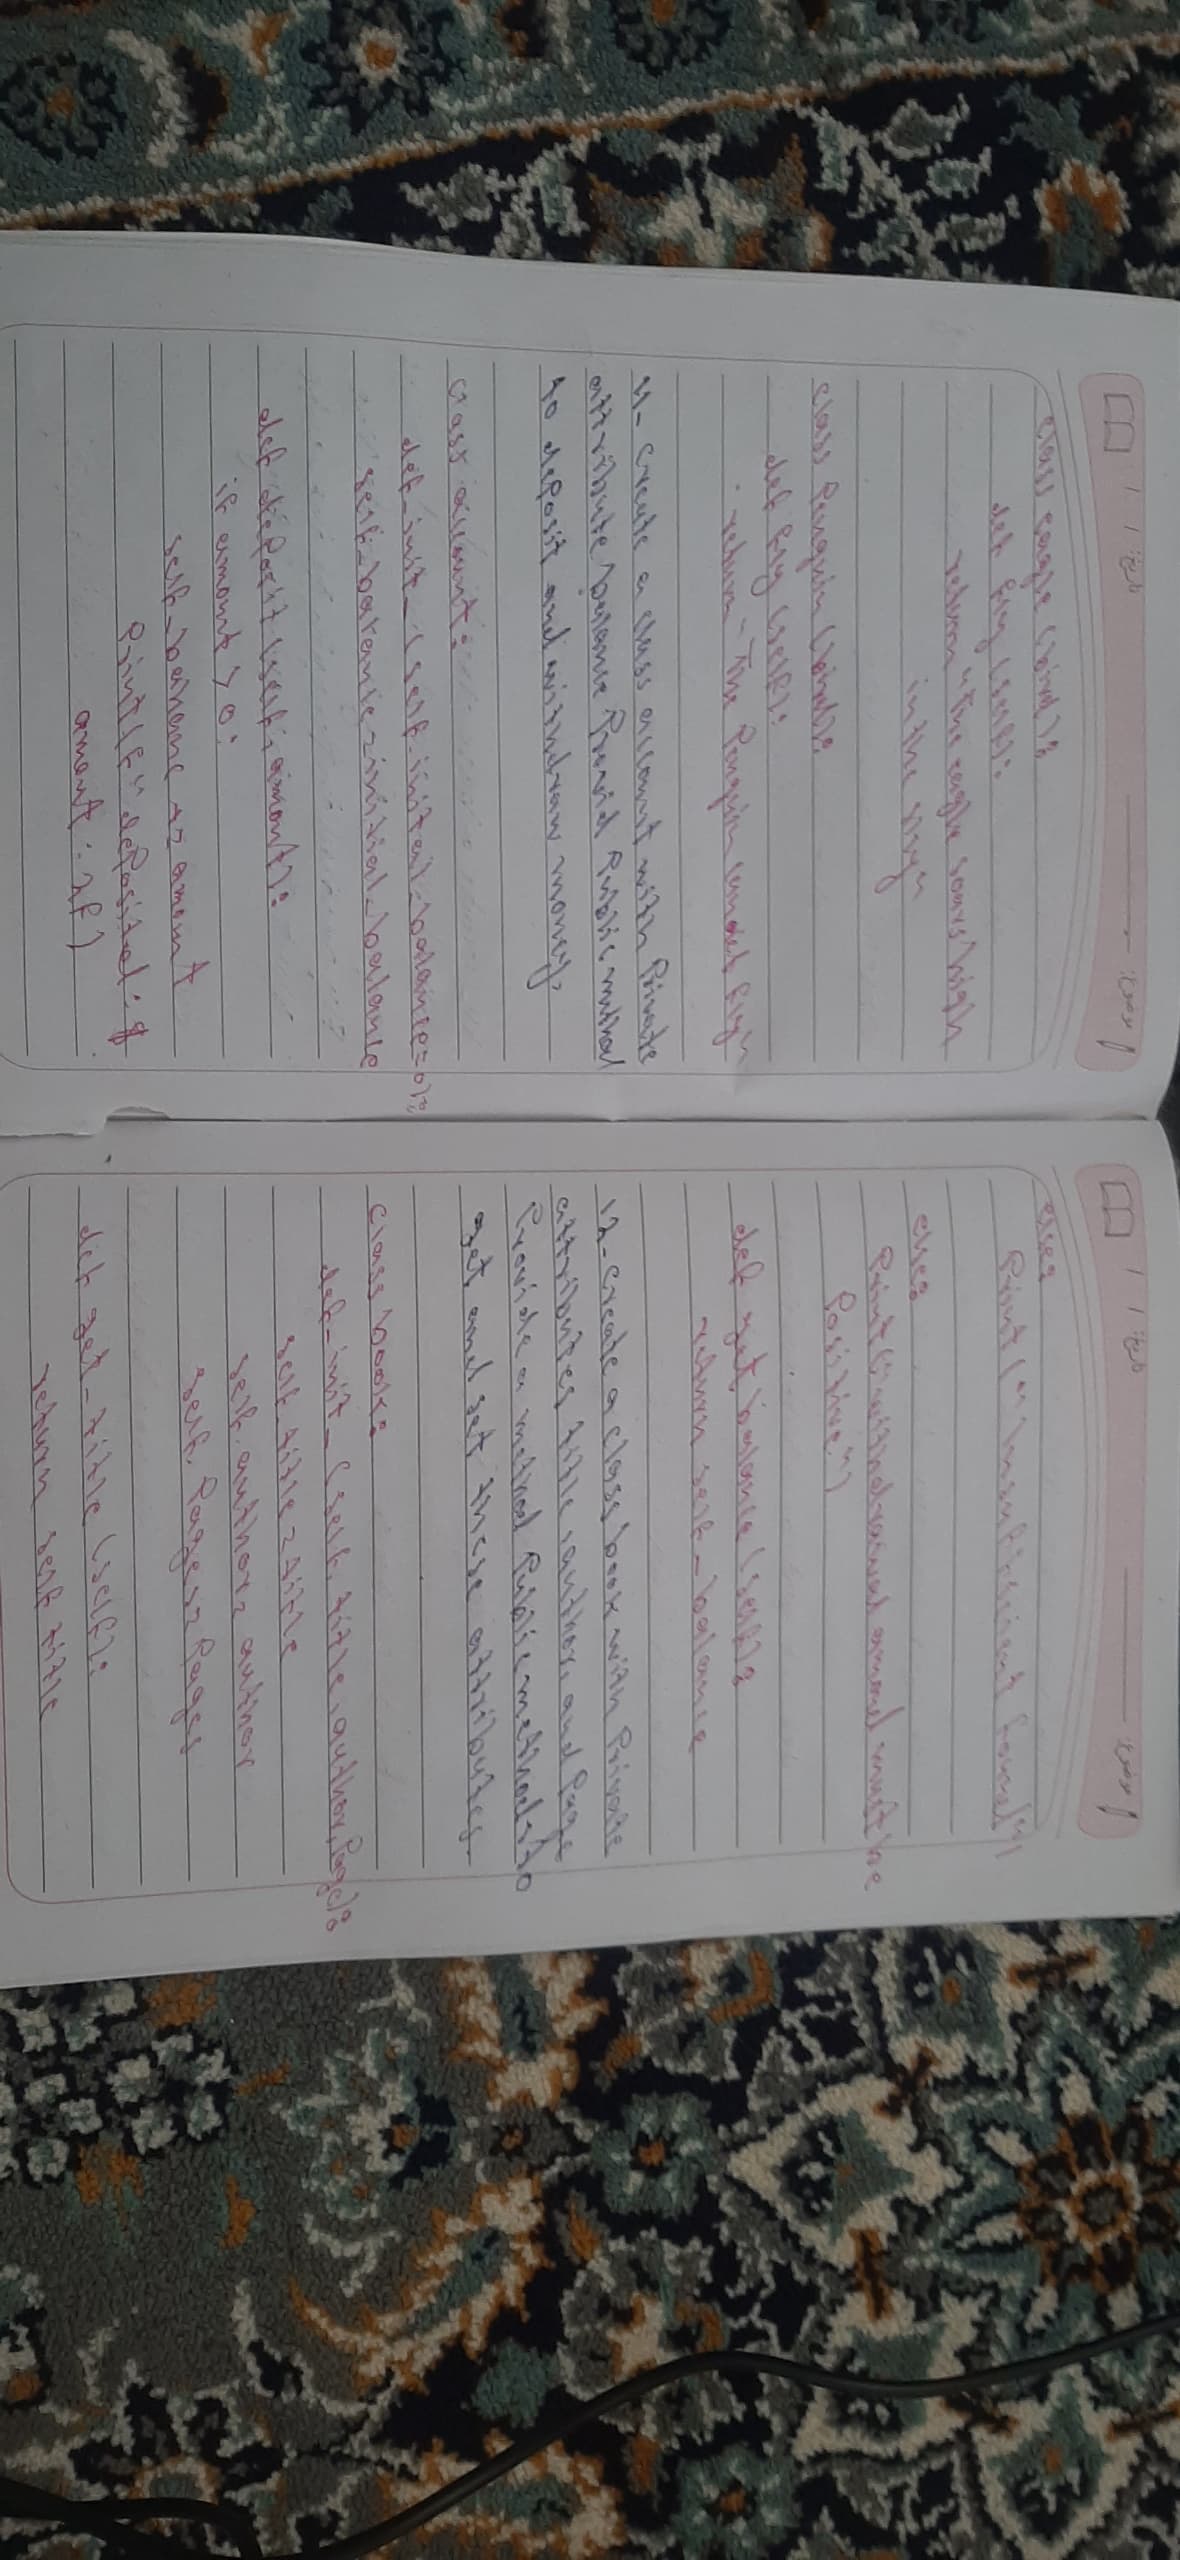 class eagle (bird):
def fly (self):
return "The eagle soars high
in the sky"
class Penguin (bird):
def fly (self):
return "The Penguin cannot fly"
11- Create a class account with Private
attribute balance Provid Public method
to deposit and withdraw money.
class account:
def_init_(self, initial_balance=0):
self_balance=initial_balance
def deposit (self, amount):
if amount > 0:
self_balance += amount
Print(f"deposited:
amount:.2f)
else:
Print("Insufficient funds")
else:
Print("withdrawal amount must be
Positive")
def get balance (self):
return self_balance
12- Create a class book with Private
attributes title, author, and Page
Provide a method Public methods to
get and set these attributes.
class book:
def_init_(self, title, author, Page):
self.title=title
self.author=author
self.Pages=Pages
def get_title (self):
return self title